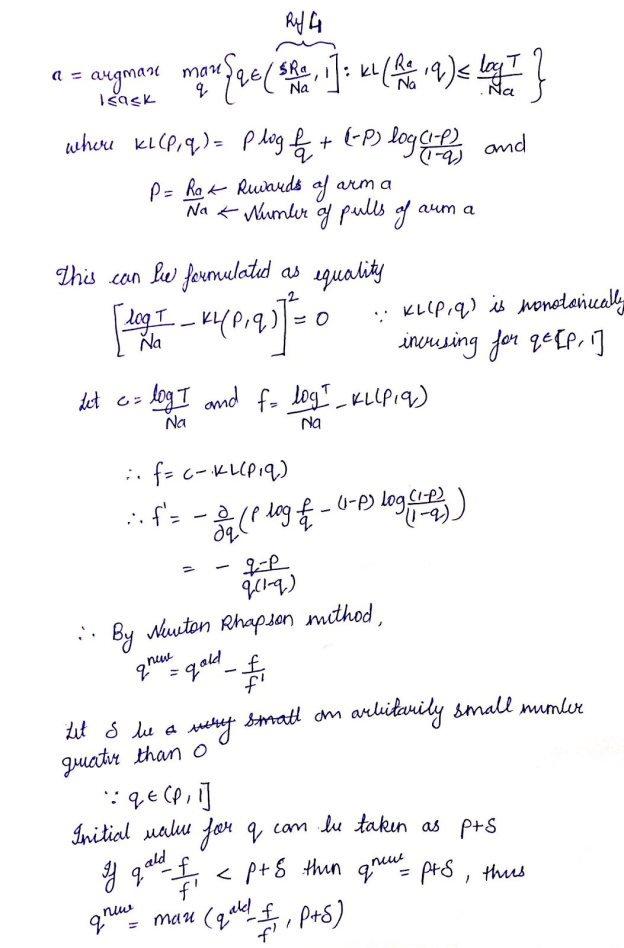 Ref 4
a = argmax max {q ∈ (SRa/Na, 1] : KL(Ra/Na, q) ≤ log T/Na}
1≤a≤K q
where KL(P,q) = P log P/q + (-P) log (1-P)/(1-q) and
P = Ra/Na ← Rewards of arm a
← Number of pulls of arm a
This can be formulated as equality
[log T/Na - KL(P,q)]² = 0 ∵ KL(P,q) is monotonically
incrising for q∈[P,1]
Let c = log T/Na and f = log T/Na - KL(P,q)
∴ f = c - KL(P,q)
∴ f' = - ∂/∂q (P log P/q - (1-P) log (1-P)/(1-q))
= - q-P/q(1-q)
∴ By Newton Rhapson method,
q^new = q^old - f/f'
Let δ be a very small an arbitarily small number
greater than 0
∵ q∈(P,1]
Initial value for q can be taken as P+δ
If q^old - f/f' < P+δ then q^new = P+δ, thus
q^new = max (q^old - f/f', P+δ)